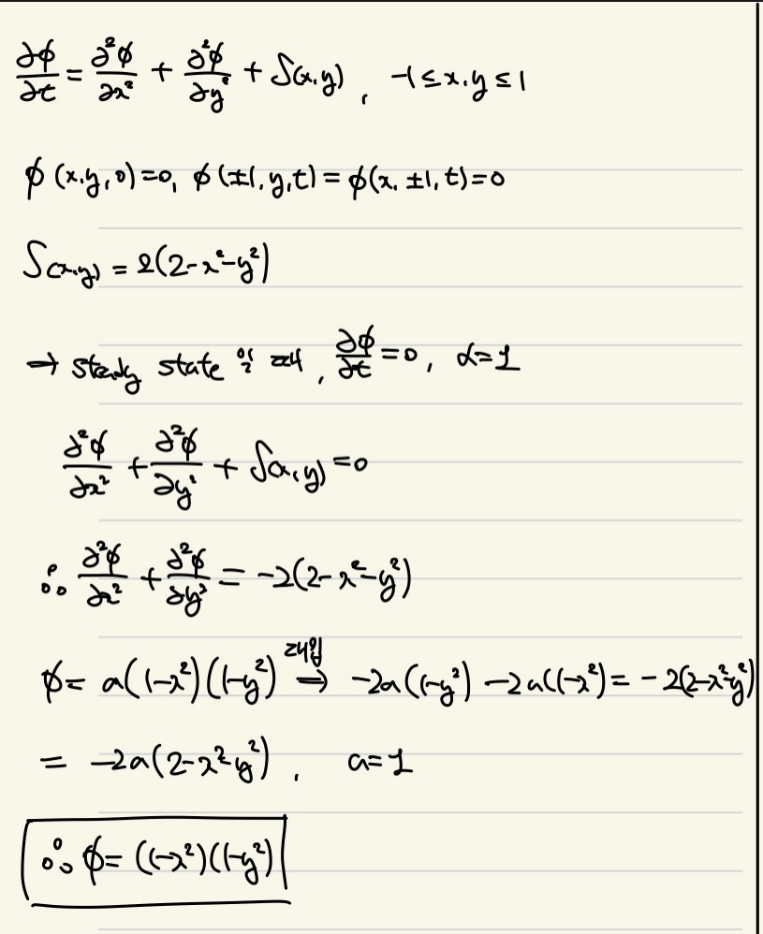 ∂φ/∂t = ∂²φ/∂x² + ∂²φ/∂y² + S(x,y), -1≤x,y≤1
φ(x,y,0)=0, φ(±1,y,t)=φ(x,±1,t)=0
S(x,y) = 2(2-x²-y²)
→ steady state, ∂φ/∂t=0, α=1
∂²φ/∂x² + ∂²φ/∂y² + S(x,y)=0
∴ ∂²φ/∂x² + ∂²φ/∂y² = -2(2-x²-y²)
φ= a(1-x²)(1-y²) 대입→ -2a(1-y²) -2a(1-x²) = -2(2-x²-y²)
= -2a(2-x²-y²), a=1
∴ φ= (1-x²)(1-y²)